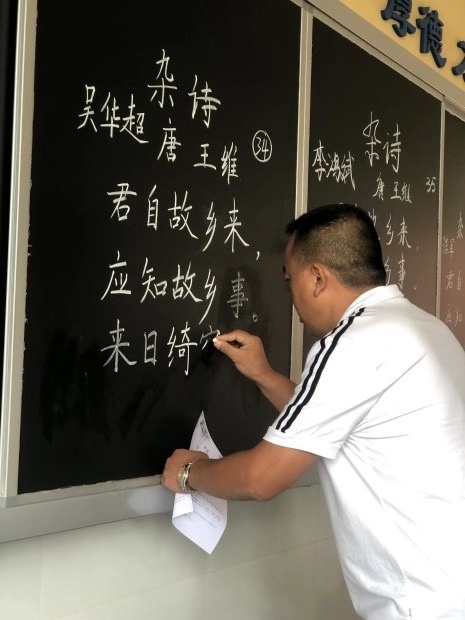 厚德
杂诗
吴华超 唐 王维 ㉞
君自故乡来，
应知故乡事。
来日绮
杂诗
李鸿斌 唐 王维 35
乡来，
乡事。
君自
应知